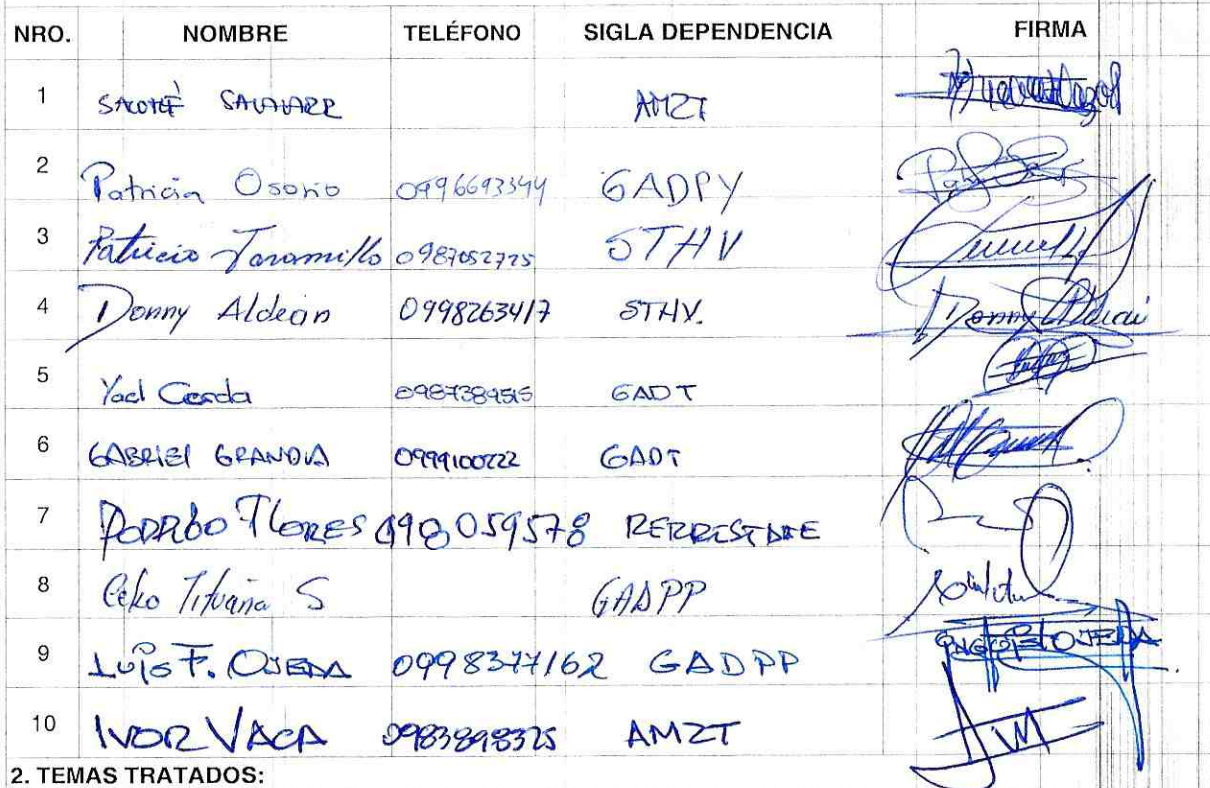 NRO. NOMBRE TELÉFONO SIGLA DEPENDENCIA FIRMA
1 AMZT
2 Patricia Osorio 0996693344 GADPY
3 Patricio Jaramillo 0987052725 STHV
4 Donny Aldean 0998263417 STHV. Donny Aldean
5 Yael Cerda 0987389515 GADT
6 GABRIEL GRANDA 0999100222 GADT
7 FLORES 098059578
8 Tituaña S GADPP
9 LUIS F. OJEDA 0998377162 GADPP OJEDA
10 IVOR VACA 0983898325 AMZT
2. TEMAS TRATADOS: